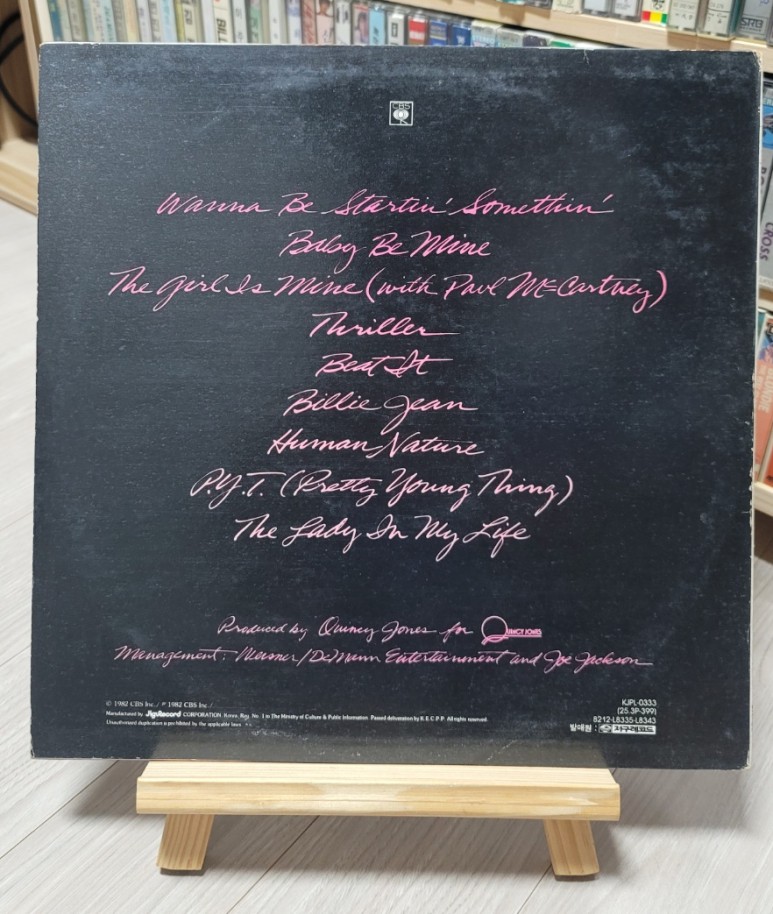 CBS
Wanna Be Startin' Somethin'
Baby Be Mine
The Girl Is Mine (with Paul McCartney)
Thriller
Beat It
Billie Jean
Human Nature
P.Y.T. (Pretty Young Thing)
The Lady In My Life
Produced by Quincy Jones for QUINCY JONES
Management: Weisner/DeMann Entertainment and Joe Jackson
© 1982 CBS Inc./ ℗ 1982 CBS Inc./
Manufactured by JiguRecord CORPORATION. Korea. Reg. No. 1 in The Ministry of Culture & Public Information. Passed deliberation by K.E.C.P.P. All rights reserved.
Unauthorized duplication is prohibited by the applicable laws
KJPL-0333
(25.3P-399)
8212-L8335-L8343
발매원 : 지구레코드
SRB
CROSS